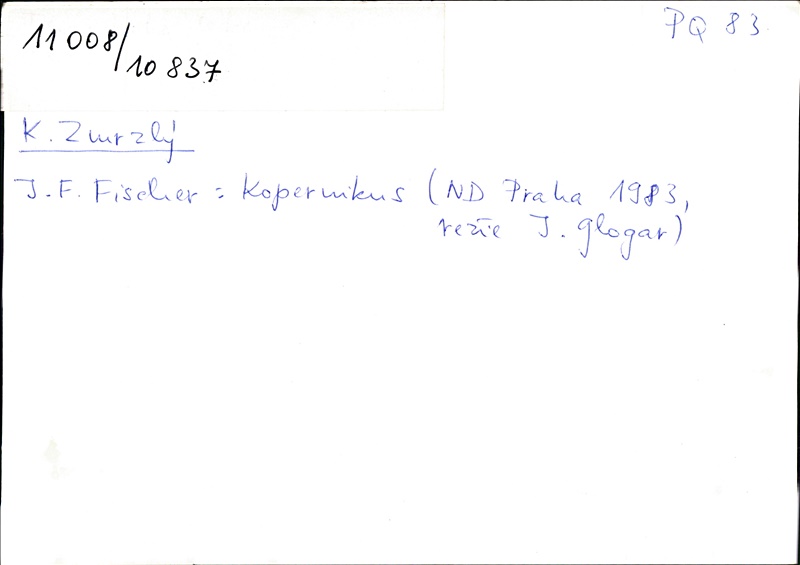 11 008/10 837
PQ 83
K. Zmrzlý
J. F. Fischer : Kopernikus (ND Praha 1983,
režie J. Glogar)